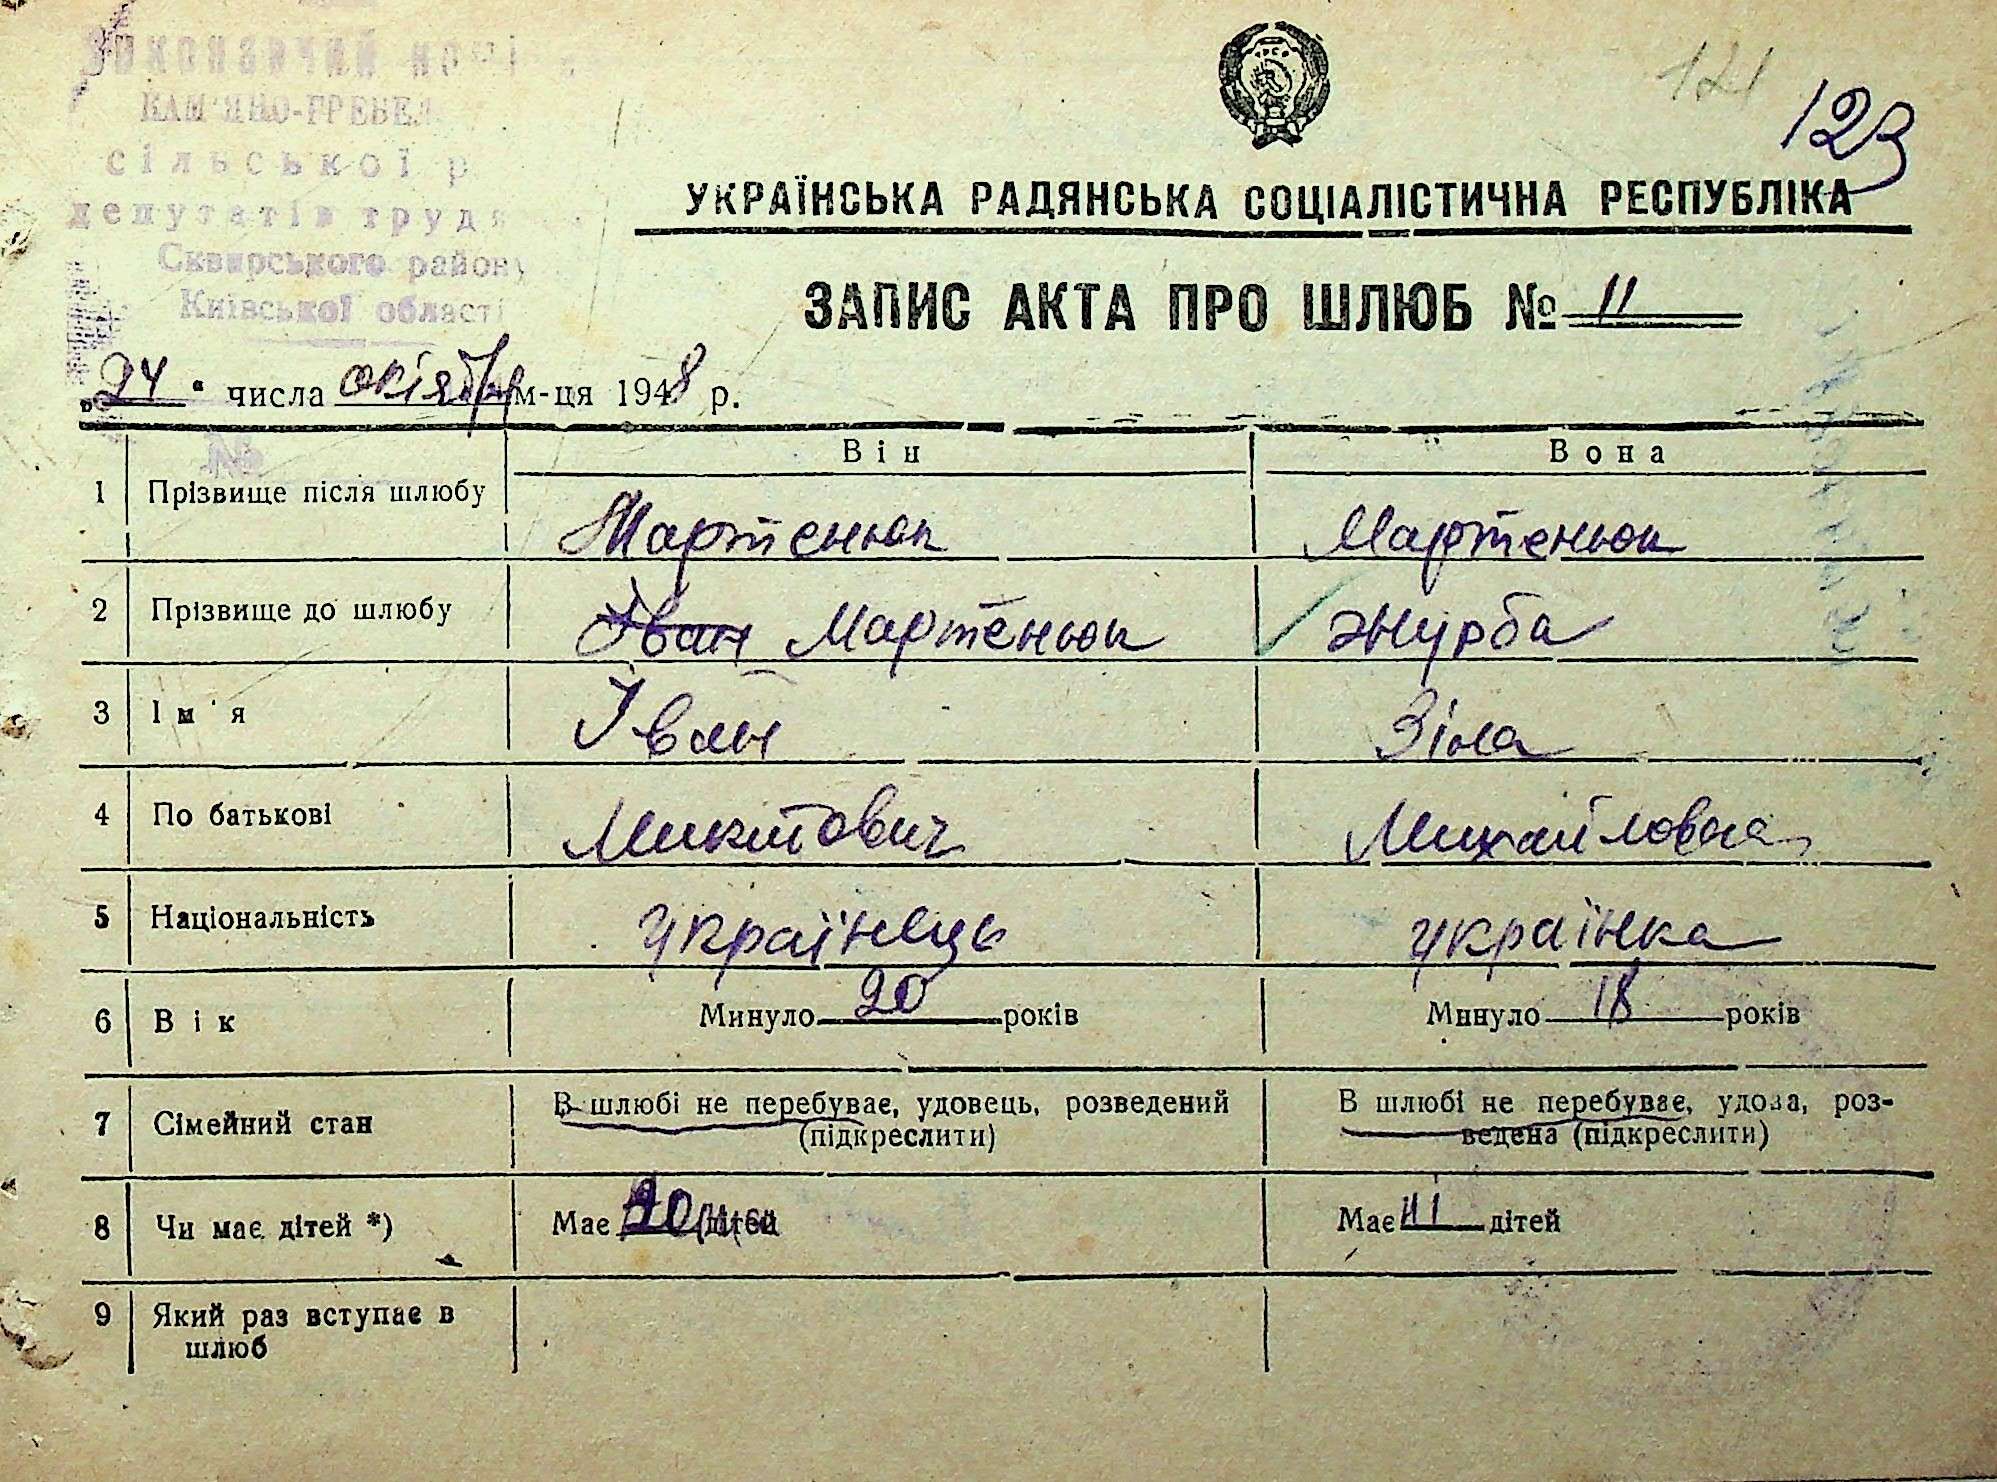 Виконавчий
КАМ'ЯНО-ГРЕБЕЛ
сільської р
депутатів трудя
Сквирського району
Київської області
121
123
УКРАЇНСЬКА РАДЯНСЬКА СОЦІАЛІСТИЧНА РЕСПУБЛІКА
ЗАПИС АКТА ПРО ШЛЮБ № 11
„24“ числа октября м-ця 1948 р.
№
Він Вона
1 Прізвище після шлюбу Мартенюк Мартенюк
2 Прізвище до шлюбу Іван Мартенюк Журба
3 Ім'я Іван Зіна
4 По батькові Микитович Михайловна
5 Національність українець українка
6 Вік Минуло 20 років Минуло 18 років
7 Сімейний стан В шлюбі не перебуває, удовець, розведений (підкреслити) В шлюбі не перебуває, удова, роз-
ведена (підкреслити)
8 Чи має дітей *) Має дітей Має дітей
9 Який раз вступає в
шлюб